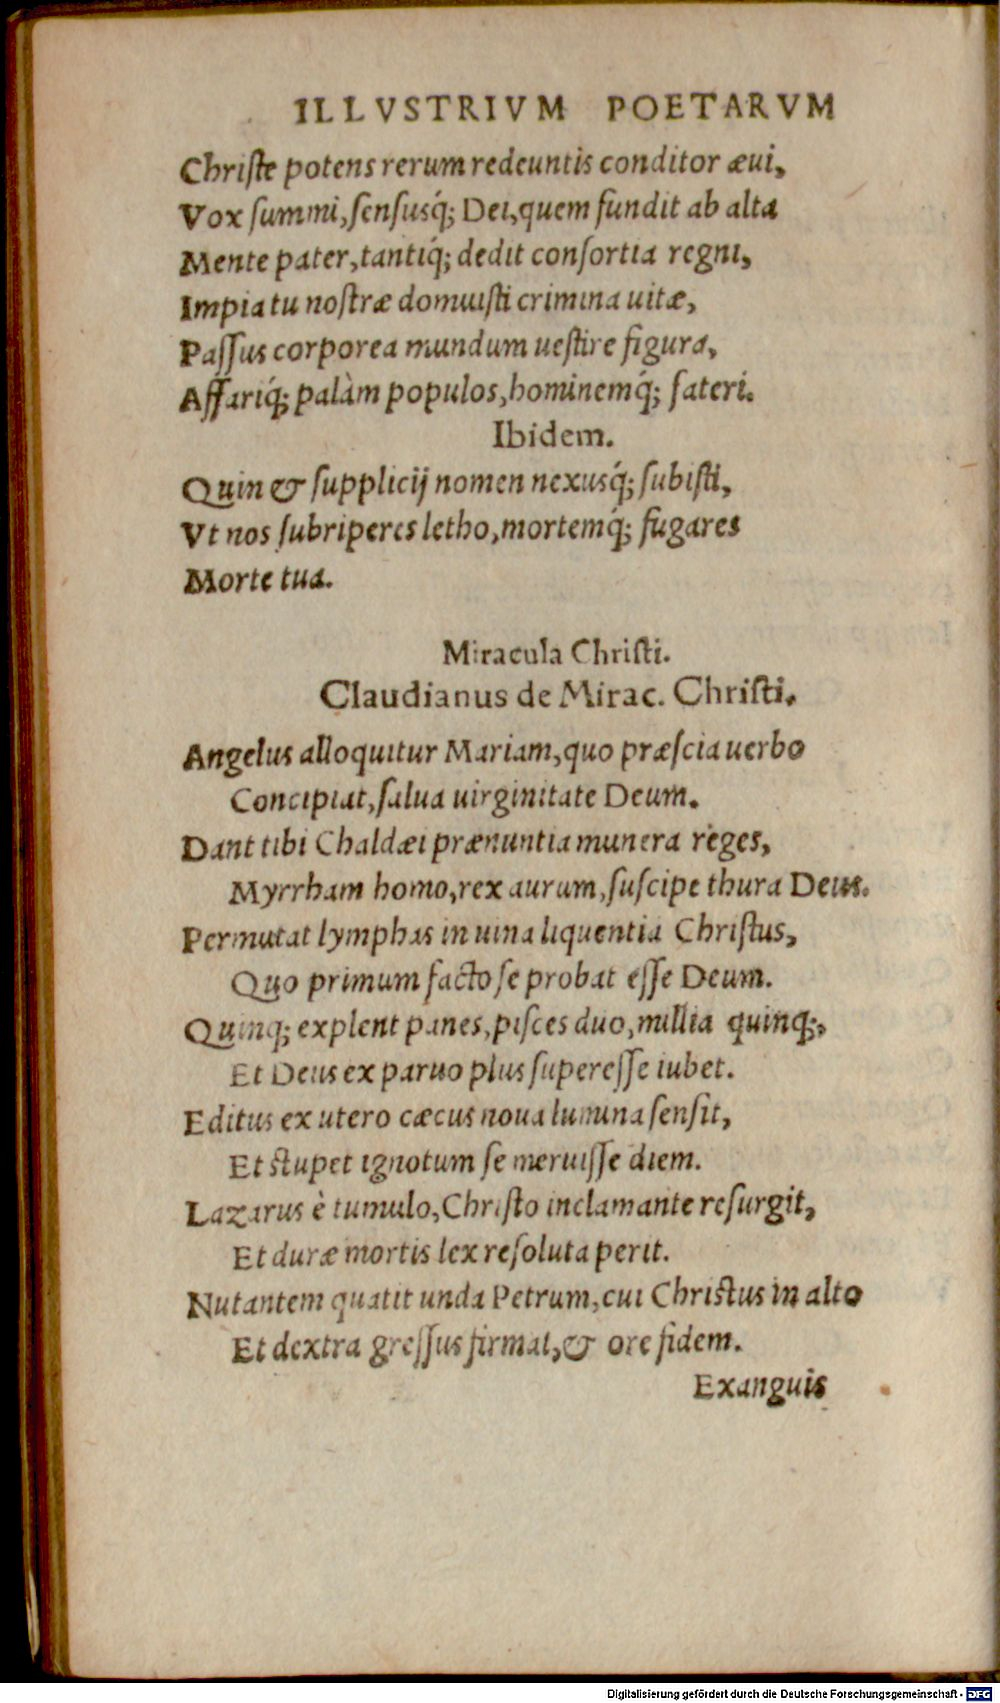 ILLVSTRIVM POETARVM
Chriſte potens rerum redeuntis conditor æui,
Vox ſummi, ſenſusq́; Dei, quem fundit ab alta
Mente pater, tantiq́; dedit conſortia regni,
Impia tu noſtræ domuiſti crimina uitæ,
Paſſus corporea mundum ueſtire figura,
Affariq́; palàm populos, hominemq́; fateri.
Ibidem.
Quin & ſupplicij nomen nexusq́; ſubiſti,
Vt nos ſubriperes letho, mortemq́; fugares
Morte tua.
Miracula Chriſti.
Claudianus de Mirac. Chriſti.
Angelus alloquitur Mariam, quo præſcia uerbo
Concipiat, ſalua uirginitate Deum.
Dant tibi Chaldæi prænuntia munera reges,
Myrrham homo, rex aurum, ſuſcipe thura Deus.
Permutat lymphas in uina liquentia Chriſtus,
Quo primum facto ſe probat eſſe Deum.
Quinq; explent panes, piſces duo, millia quinq;,
Et Deus ex paruo plus ſupereſſe iubet.
Editus ex utero cæcus noua lumina ſenſit,
Et ſtupet ignotum ſe meruiſſe diem.
Lazarus è tumulo, Chriſto inclamante reſurgit,
Et duræ mortis lex reſoluta perit.
Nutantem quatit unda Petrum, cui Chriſtus in alto
Et dextra greſſus firmat, & ore fidem.
Exanguis
Digitalisierung gefördert durch die Deutsche Forschungsgemeinschaft - DFG